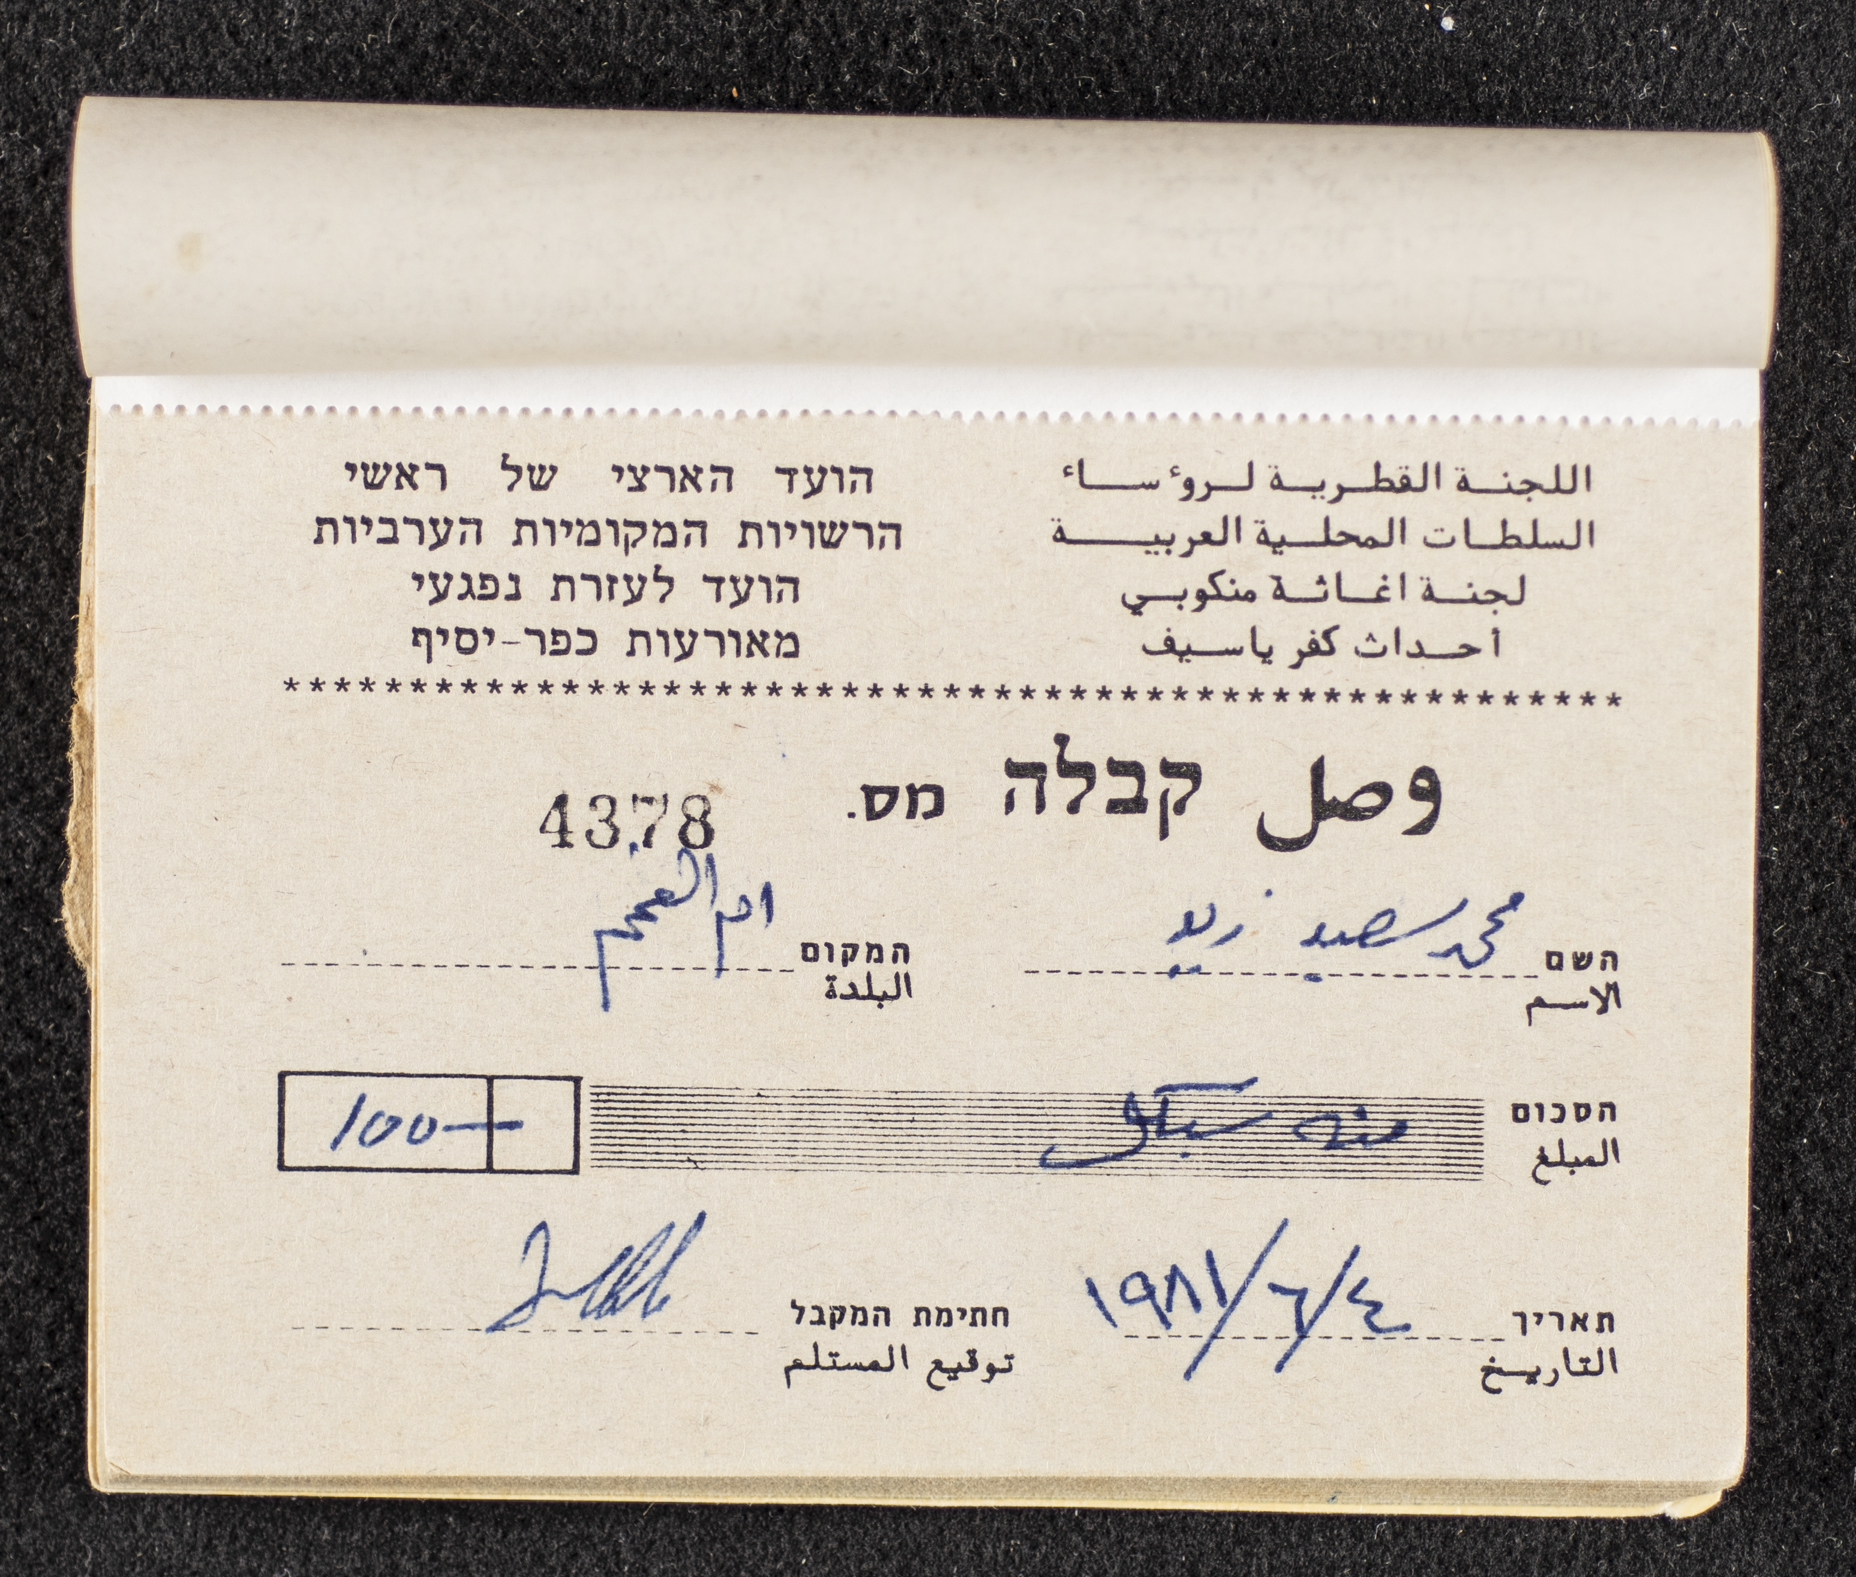 اللجنة القطرية لروءساء
السلطات المحلية العربية
لجنة اغاثة منكوبي
احداث كفر ياسيف
הועד הארצי של ראשי
הרשויות המקומיות הערביות
הועד לעזרת נפגעי
מאורעות כפר-יסיף
*****************************************************
وصل קבלה מס. 4378
השם محمد سعيد زيد המקום ام الفحم
الاسم البلدة
הסכום مئة شيكل 100—
المبلغ
תאריך ٤/٦/١٩٨١ חתימת המקבל
التاريخ توقيع المستلم